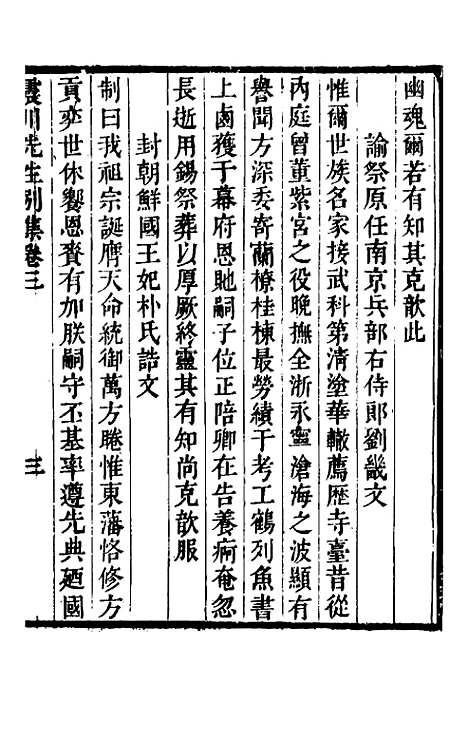 幽魂爾若有知其克歆此
諭祭原任南京兵部右侍郎劉畿文
惟爾世族名家接武科第淸塗華轍薦歷寺臺昔從
內庭曾董紫宮之役晚撫全浙永寧滄海之波顯有
譽聞方深委寄蘭橑桂棟最勞績于考工鶴列魚書
上鹵獲于幕府恩貤嗣子位正陪卿在告養痾奄忽
長逝用錫祭葬以厚厥終靈其有知尚克歆服
封朝鮮國王妃朴氏誥文
制曰我祖宗誕膺天命統御萬方睠惟東藩恪修方
貢奕世休饗恩賚有加朕嗣守丕基率遵先典廼國
震川先生別集卷三
三